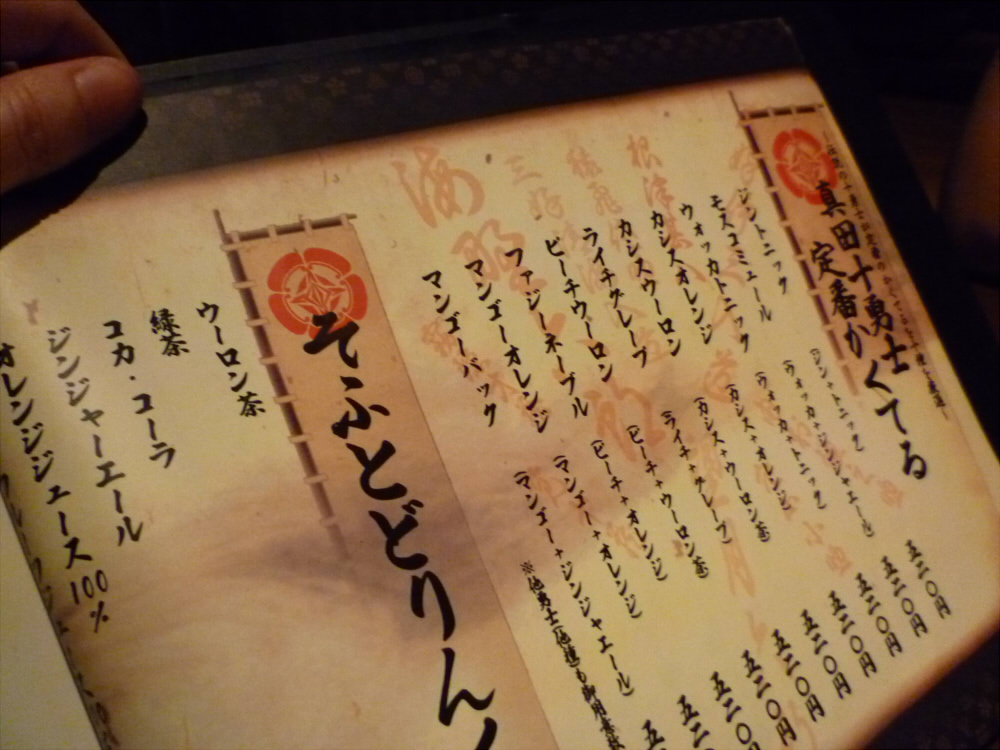 真田十勇士
定番かくてる
ジントニック (ジン+トニック) 五二〇円
モスコミュール (ウォッカ+ジンジャエール) 五二〇円
ウォッカトニック (ウォッカ+トニック) 五二〇円
カシスオレンジ (カシス+オレンジ) 五二〇円
カシスウーロン (カシス+ウーロン茶) 五二〇円
ライチグレープ (ライチ+グレープ) 五二〇円
ピーチウーロン (ピーチ+ウーロン茶) 五二〇円
ファジーネーブル (ピーチ+オレンジ) 五二〇円
マンゴーオレンジ (マンゴー+オレンジ) 五二
マンゴーバック (マンゴー+ジンジャエール) 五
※他勇士(他種)も御用意
そふとどりん
ウーロン茶
緑茶
コカ・コーラ
ジンジャーエール
オレンジジュース100%